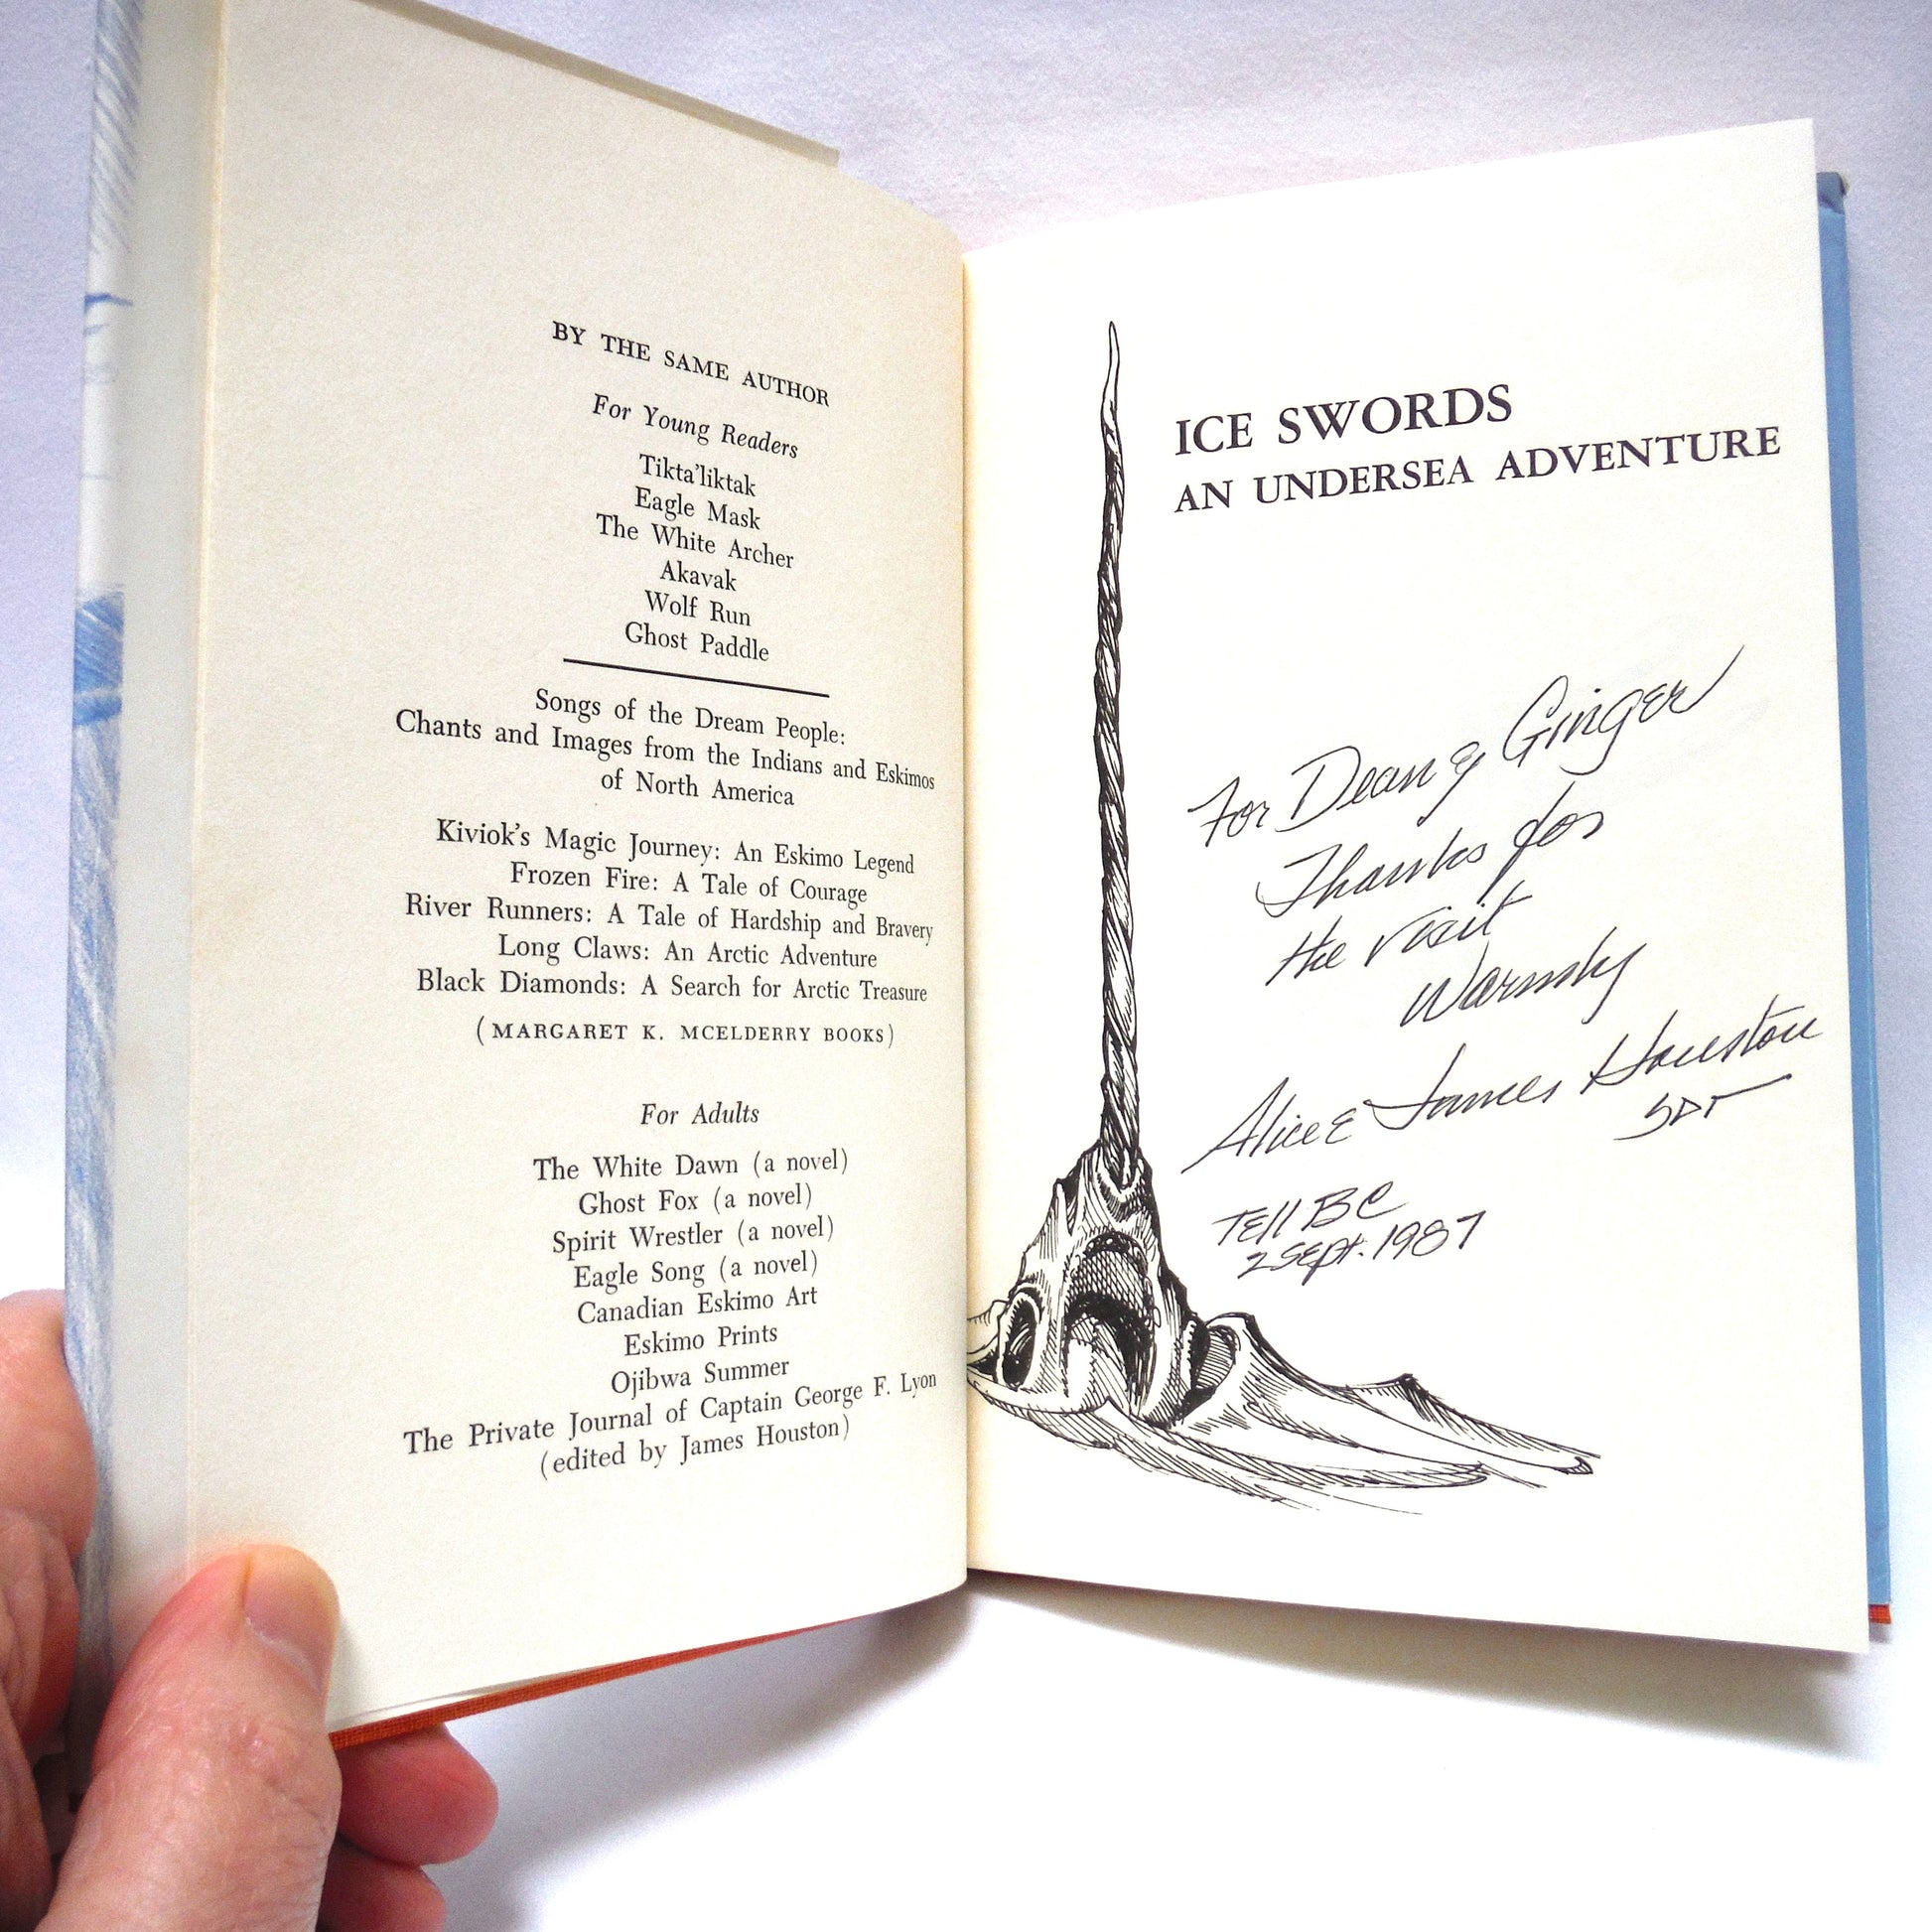 BY THE SAME AUTHOR
For Young Readers
Tikta'liktak
Eagle Mask
The White Archer
Akavak
Wolf Run
Ghost Paddle
Songs of the Dream People:
Chants and Images from the Indians and Eskimos
of North America
Kiviok's Magic Journey: An Eskimo Legend
Frozen Fire: A Tale of Courage
River Runners: A Tale of Hardship and Bravery
Long Claws: An Arctic Adventure
Black Diamonds: A Search for Arctic Treasure
(MARGARET K. MCELDERRY BOOKS)
For Adults
The White Dawn (a novel)
Ghost Fox (a novel)
Spirit Wrestler (a novel)
Eagle Song (a novel)
Canadian Eskimo Art
Eskimo Prints
Ojibwa Summer
The Private Journal of Captain George F. Lyon
(edited by James Houston)
ICE SWORDS
AN UNDERSEA ADVENTURE
For Dean & Ginger
Thanks for
the visit
Warmly
Alice & James Houston
ᓴᐅᒥ
Tell BC
2 Sept. 1987